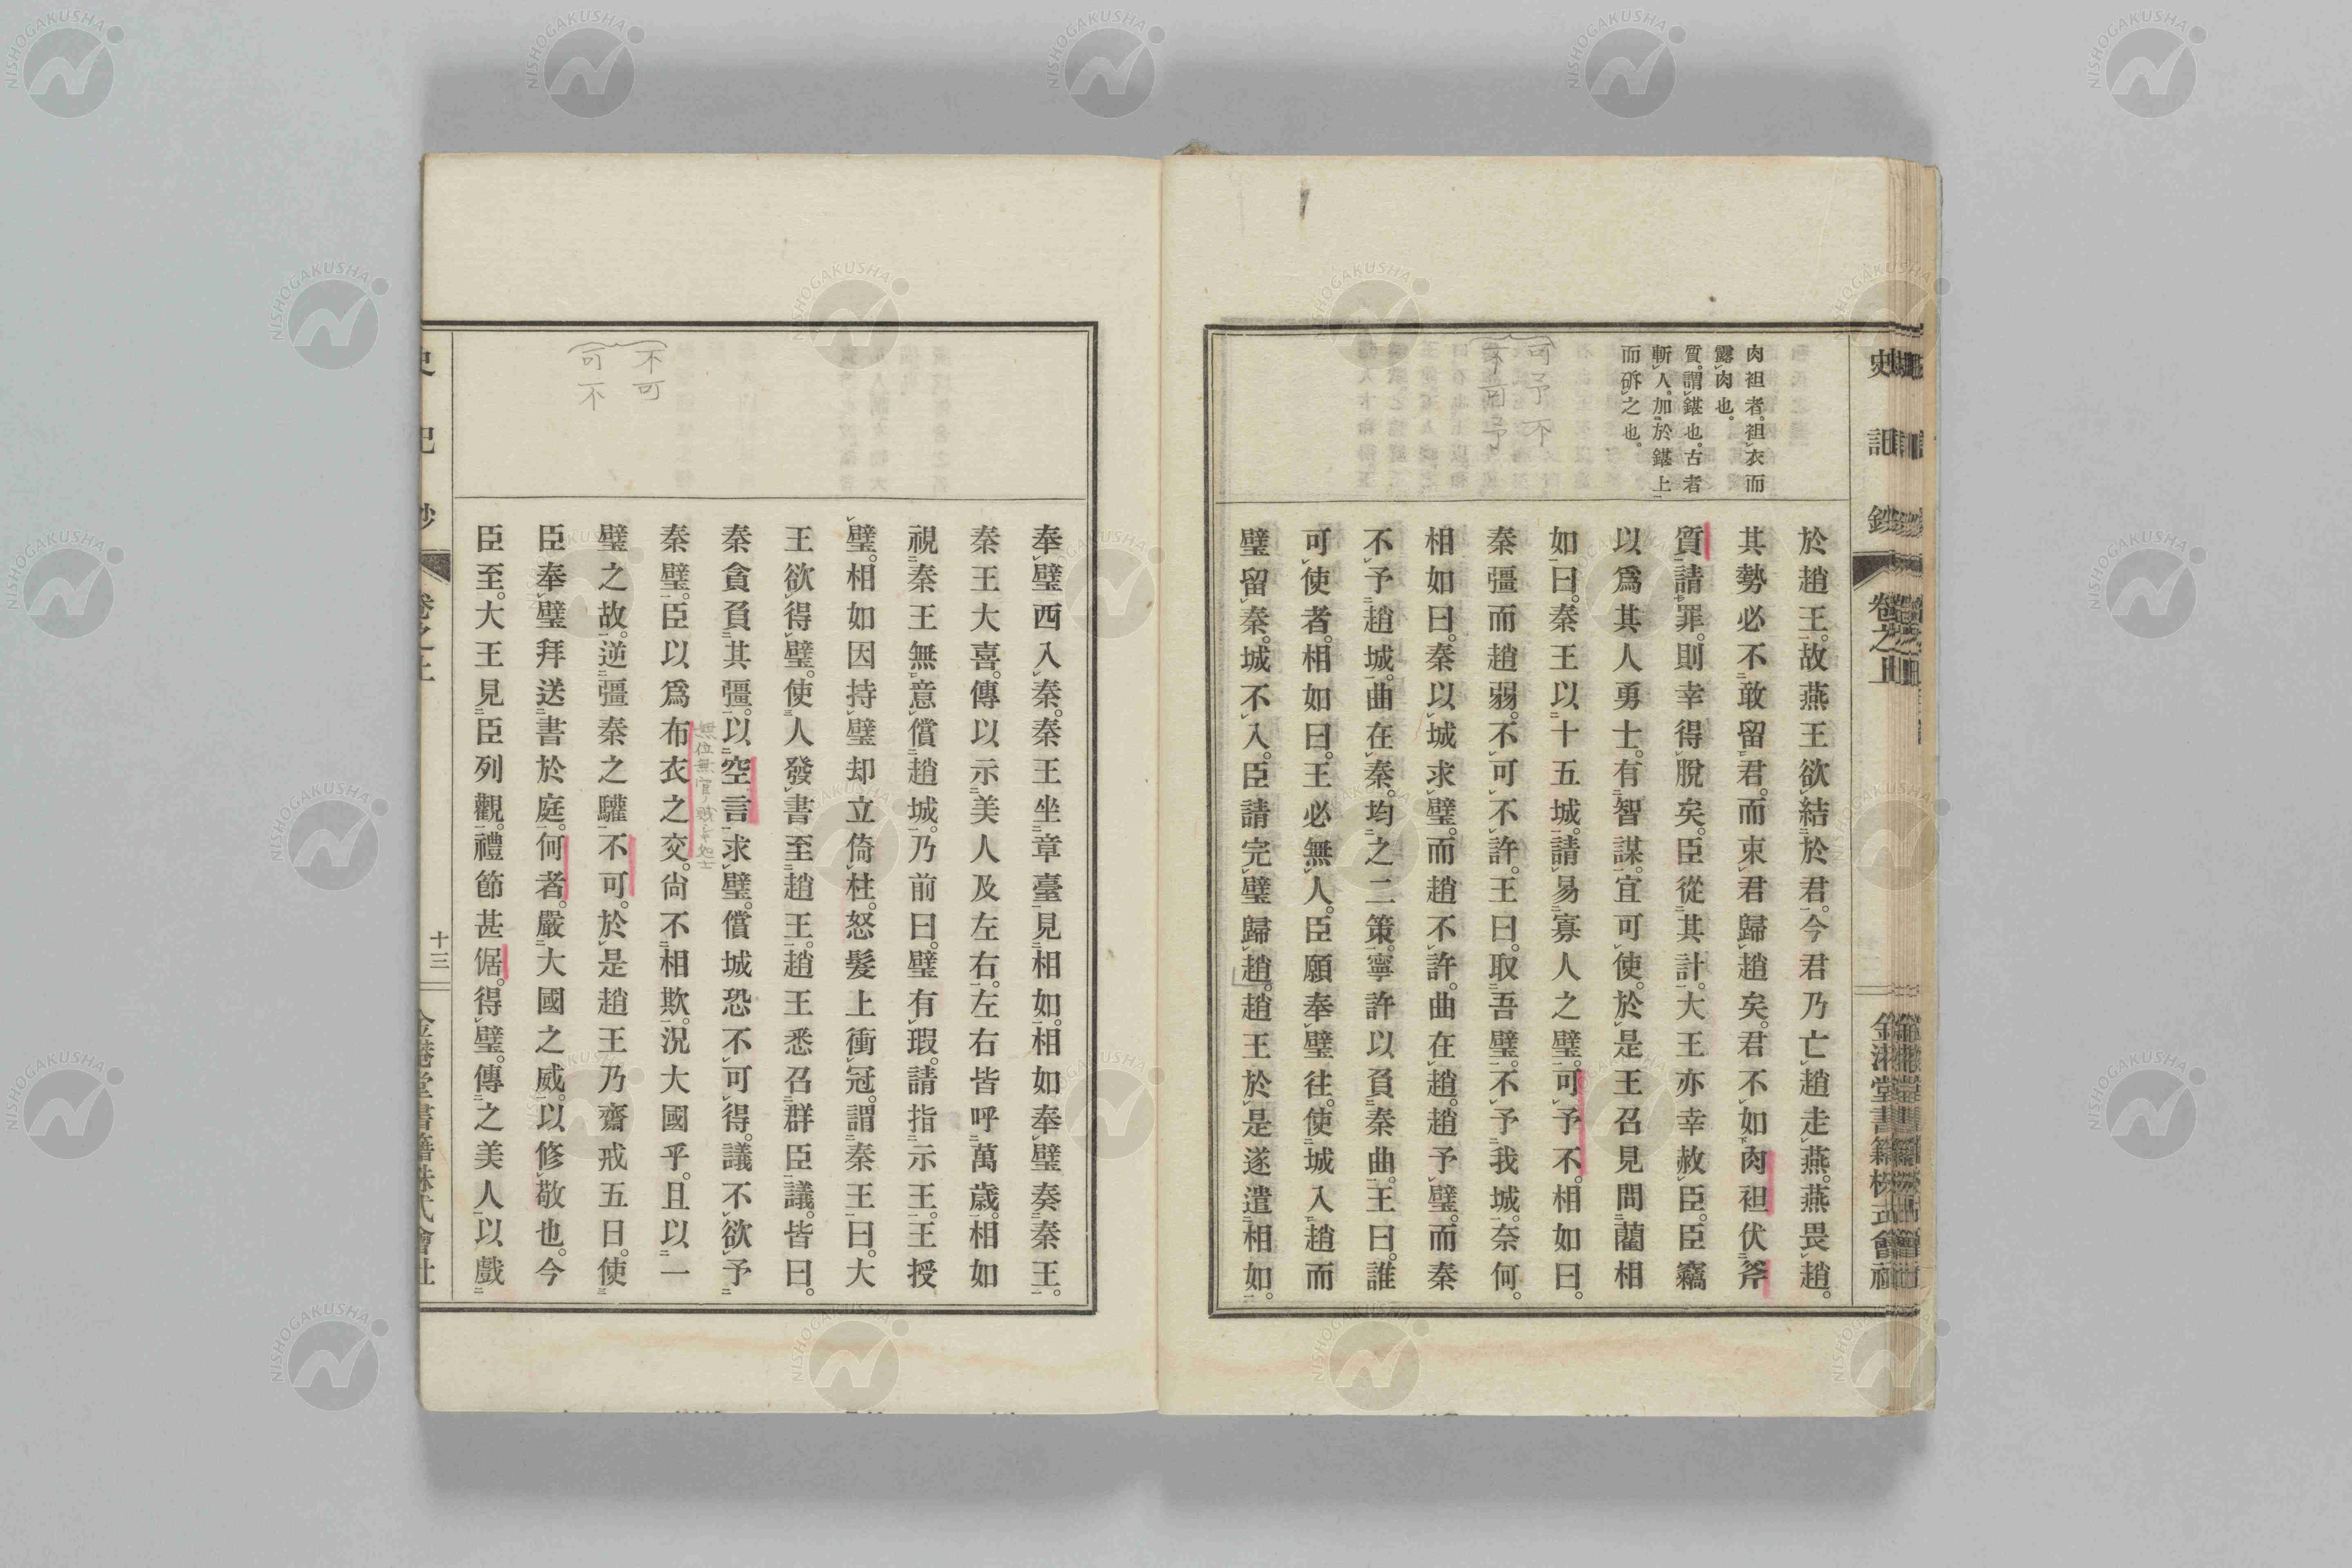 史記鈔
卷之上
金港堂書籍株式會社
肉袒者。袒衣而
露肉也。
質。謂鍖也。古者
斬人。加於鍖上
而斫之也。
可予不
不可予
於趙王。故燕王欲結於君。今君乃亡趙走燕。燕畏趙。
其勢必不敢留君。而束君歸趙矣。君不如肉袒伏斧
質請罪。則幸得脫矣。臣從其計。大王亦幸赦臣。臣竊
以爲其人勇士。有智謀。宜可使。於是王召見問藺相
如曰。秦王以十五城。請易寡人之璧。可予不。相如曰。
秦彊而趙弱。不可不許。王曰。取吾璧。不予我城。奈何。
相如曰。秦以城求璧。而趙不許。曲在趙。趙予璧。而秦
不予趙城。曲在秦。均之二策。寧許以負秦曲。王曰。誰
可使者。相如曰。王必無人。臣願奉璧往。使城入趙而
璧留秦。城不入。臣請完璧歸趙。趙王於是遂遣相如。
奉璧西入秦。秦王坐章臺見相如。相如奉璧奏秦王。
秦王大喜。傳以示美人及左右。左右皆呼萬歲。相如
視秦王無意償趙城。乃前曰。璧有瑕。請指示王。王授
璧。相如因持璧却立倚柱。怒髮上衝冠。謂秦王曰。大
王欲得璧。使人發書至趙王。趙王悉召群臣議。皆曰。
秦貪負其彊。以空言求璧。償城恐不可得。議不欲予
秦璧。臣以爲布衣之交。尙不相欺。況大國乎。且以一
璧之故。逆彊秦之驩不可。於是趙王乃齋戒五日。使
臣奉璧拜送書於庭。何者。嚴大國之威。以修敬也。今
臣至。大王見臣列觀。禮節甚倨。得璧。傳之美人以戲
不可
可不
無位無官
十三
NISHOGAKUSHA